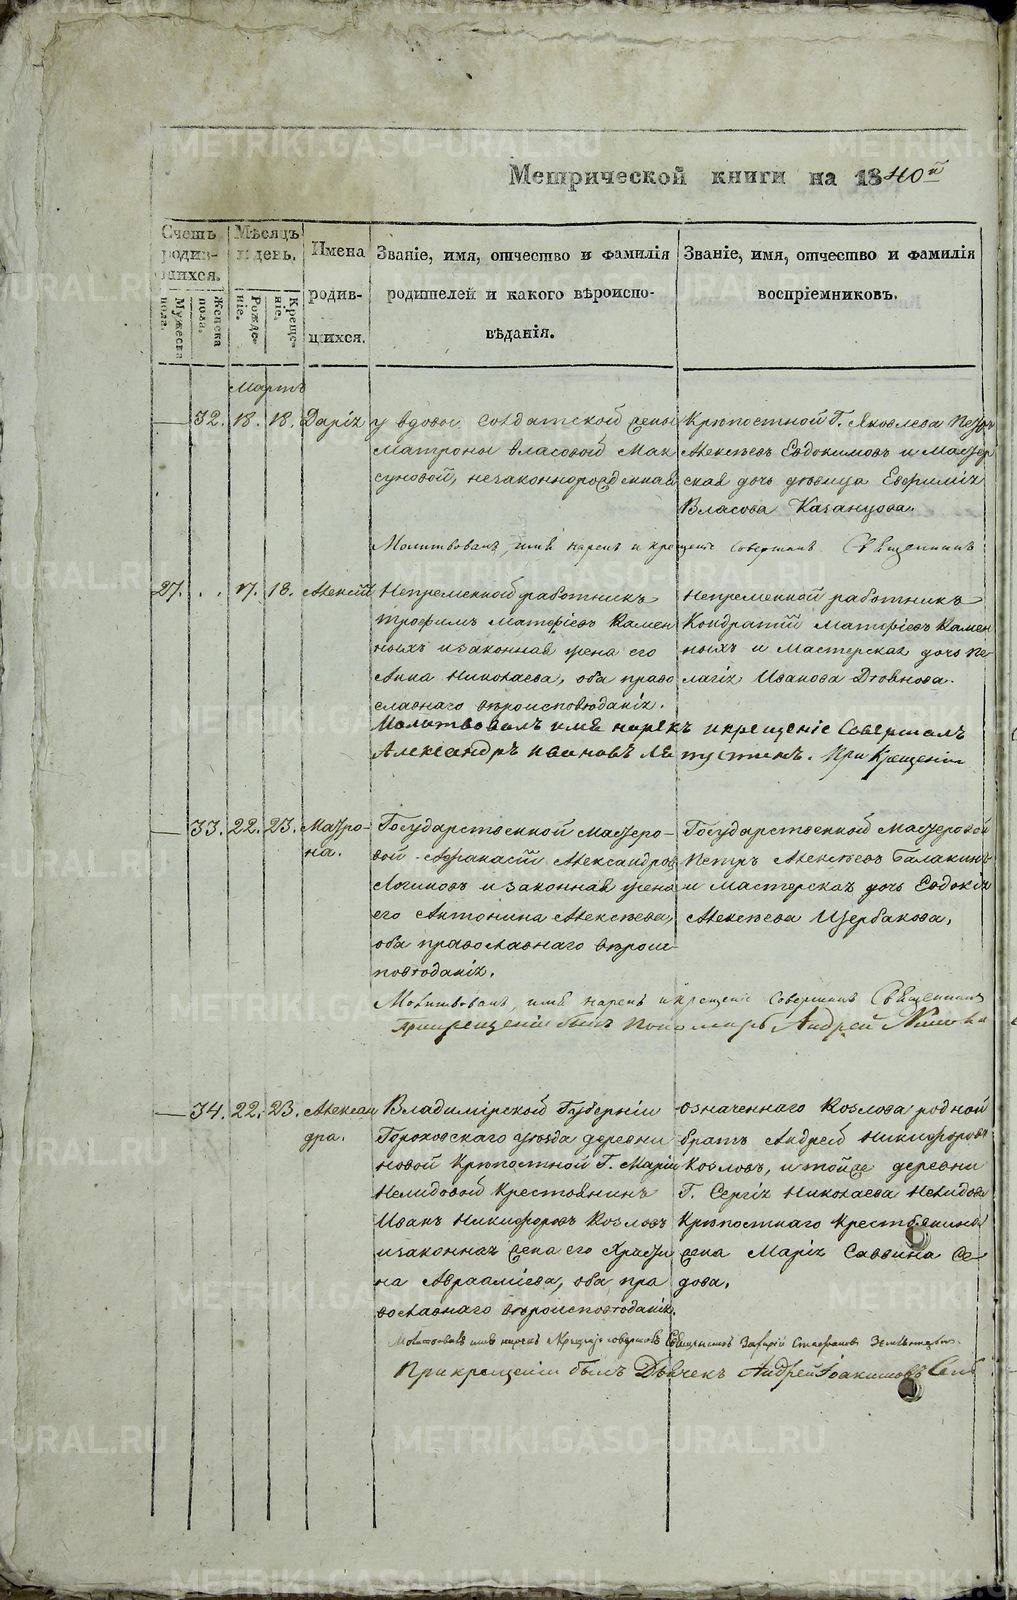 Метрической книги на 1840й
Счетъ родив-шихся.
Мѣсяцъ и день.
Имена родив-щихся.
Званіе, имя, отчество и фамилія
родителей и какого вѣроиспо-
вѣданія.
Званіе, имя, отчество и фамилія
воспріемниковъ.
Мужеска пола.
Женска пола.
Рожде-ніе.
Креще-ніе.
Мартъ
32. 18. 18. Дарія
у вдовы солдатской жены
Матроны Власовой Мак
суновой, незаконнорожденная
Крѣпостной Г. Яковлева Петръ
Алексѣевъ Евдокимовъ и мастер
ская дочь дѣвица Евфимія
Власова Казанцова.
Молитвовалъ, имя нарекъ и крещеніе совершилъ Священникъ
27. 17. 18. Алексій
Непременной работникъ
Трофимъ Матфіевъ Камен
ныхъ и законная жена его
Анна Николаева, оба право
славнаго вѣроисповѣданія.
Непременной работникъ
Кондратій Матфіевъ Камен
ныхъ и Мастерская дочь Пе-
лагія Иванова
Молитвовалъ имя нарекъ и крещеніе совершалъ
Александръ Ивановъ При Крещеніи
33. 22. 23. Матро-
на.
Государственной мастеро-
вой Афанасій Александровъ
Логиновъ и законная жена
его Антонина Алексѣева,
оба православнаго вѣроис-
повѣданія.
Государственной мастеровой
Петръ Алексѣевъ Балакинъ
и мастерская дочь Евдокія
Алексѣева Щербакова.
Молитвовалъ, имя нарекъ и крещеніе совершилъ Священникъ
При крещеніи былъ Пономарь Андрей
34. 22. 23. Алексан
дра.
Владимірской Губерніи
Гороховскаго уѣзда деревни
Новой Крѣпостной Г. Маріи
Нелидовой Крестьянинъ
Иванъ Никифоровъ Козловъ
и законная жена его Христи
на Авраамиева, оба пра
вославнаго вѣроисповѣданія.
означеннаго Козлова родной
братъ Андрей Никифоровъ
Козловъ, и той же деревни
Г. Сергія Николаева Нелидова
Крѣпостнаго крестьянина
жена Марія Саввина Се-
дова.
Молитвовалъ имя нарекъ и Крещеніе совершилъ Священникъ Захарій Стефановъ
При крещеніи былъ Дьячекъ Андрей Іоакимовъ
METRIKI.GASO-URAL.RU